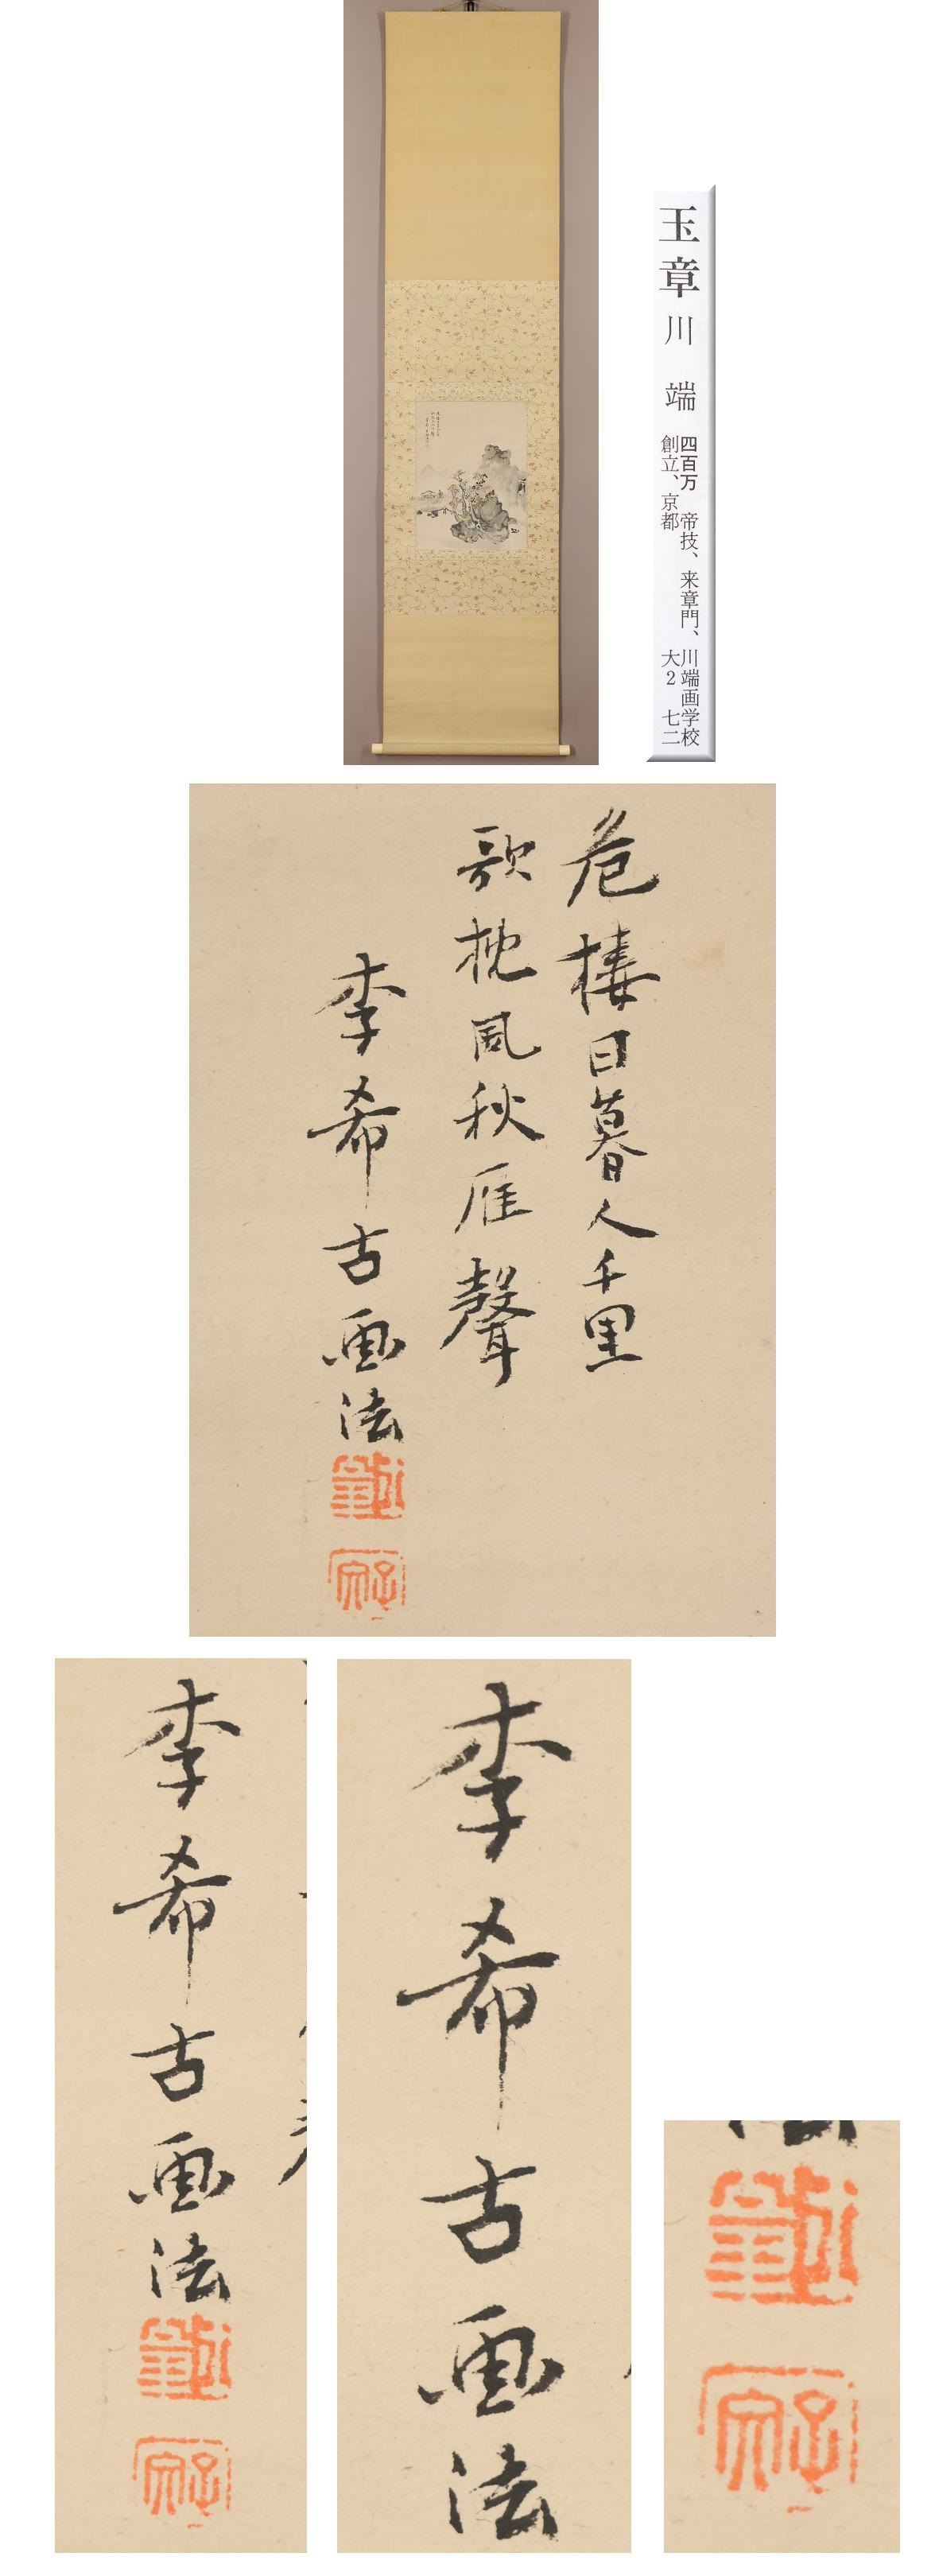 玉章 川端 四百万 帝技、来章門、川端画学校
創立、京都 大2 七二
危楼日暮人千里
欹枕風秋雁聲
李希古画法
李希古画法
李希古画法